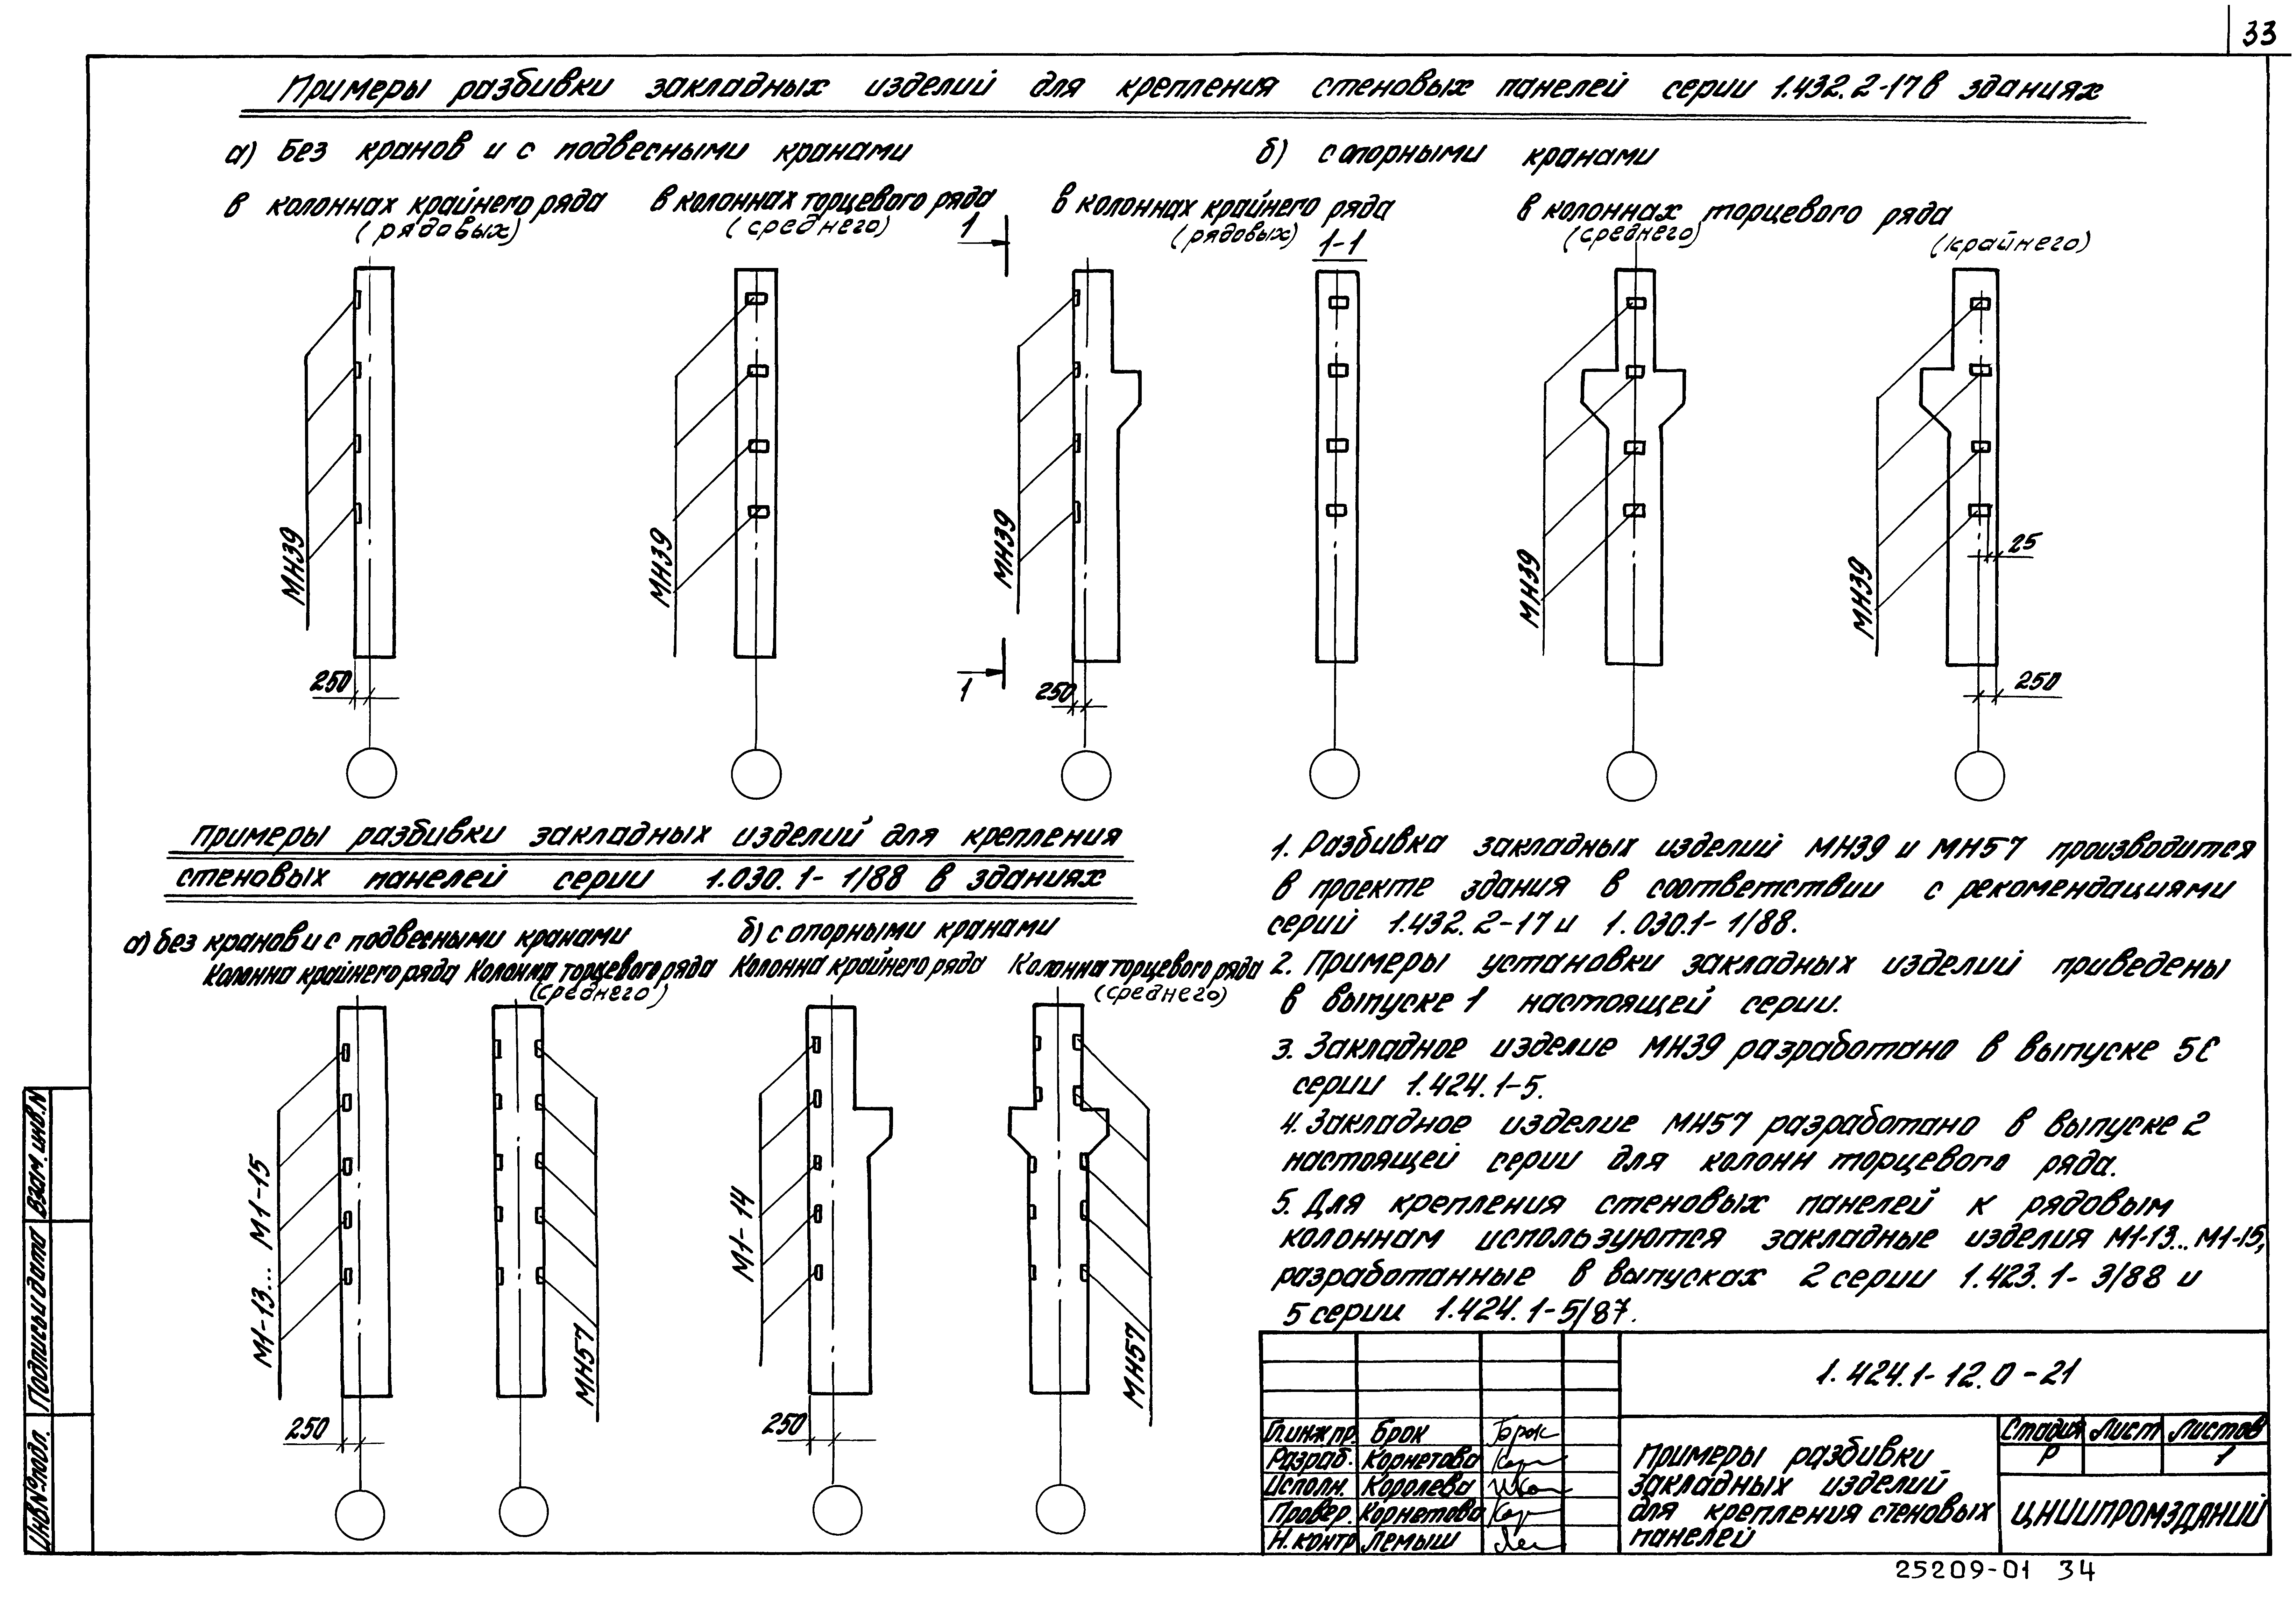 33
Примеры разбивки закладных изделий для крепления стеновых панелей серии 1.432.2-17 в зданиях
а) Без кранов и с подвесными кранами
б) с опорными кранами
в колоннах крайнего ряда
(рядовых)
в колоннах торцевого ряда
(среднего)
в колоннах крайнего ряда
(рядовых)
1-1
в колоннах торцевого ряда
(среднего)
(крайнего)
1
1
МН39
МН39
МН39
МН39
МН39
25
250
250
250
Примеры разбивки закладных изделий для крепления
стеновых панелей серии 1.030.1-1/88 в зданиях
а) без кранов и с подвесными кранами
б) с опорными кранами
Колонна крайнего ряда
Колонна торцевого ряда
(среднего)
Колонна крайнего ряда
Колонна торцевого ряда
(среднего)
М1-13... М1-15
МН57
М1-14
МН57
250
250
1. Разбивка закладных изделий МН39 и МН57 производится
в проекте здания в соответствии с рекомендациями
серий 1.432.2-17 и 1.030.1-1/88.
2. Примеры установки закладных изделий приведены
в выпуске 1 настоящей серии.
3. Закладное изделие МН39 разработано в выпуске 5С
серии 1.424.1-5.
4. Закладное изделие МН57 разработано в выпуске 2
настоящей серии для колонн торцевого ряда.
5. Для крепления стеновых панелей к рядовым
колоннам используются закладные изделия М1-13... М1-15,
разработанные в выпусках 2 серии 1.423.1-3/88 и
5 серии 1.424.1-5/87.
1.424.1-12.0-21
Гл.инж.пр. Брок Брок
Разраб. Корнетова
Исполн. Королева
Провер. Корнетова
Н.контр Лемыш
Примеры разбивки
закладных изделий
для крепления стеновых
панелей
Стадия Лист Листов
Р 1
ЦНИИПРОМЗДАНИЙ
Инв№подл. Подпись и дата Взам.инв.N
25209-01 34